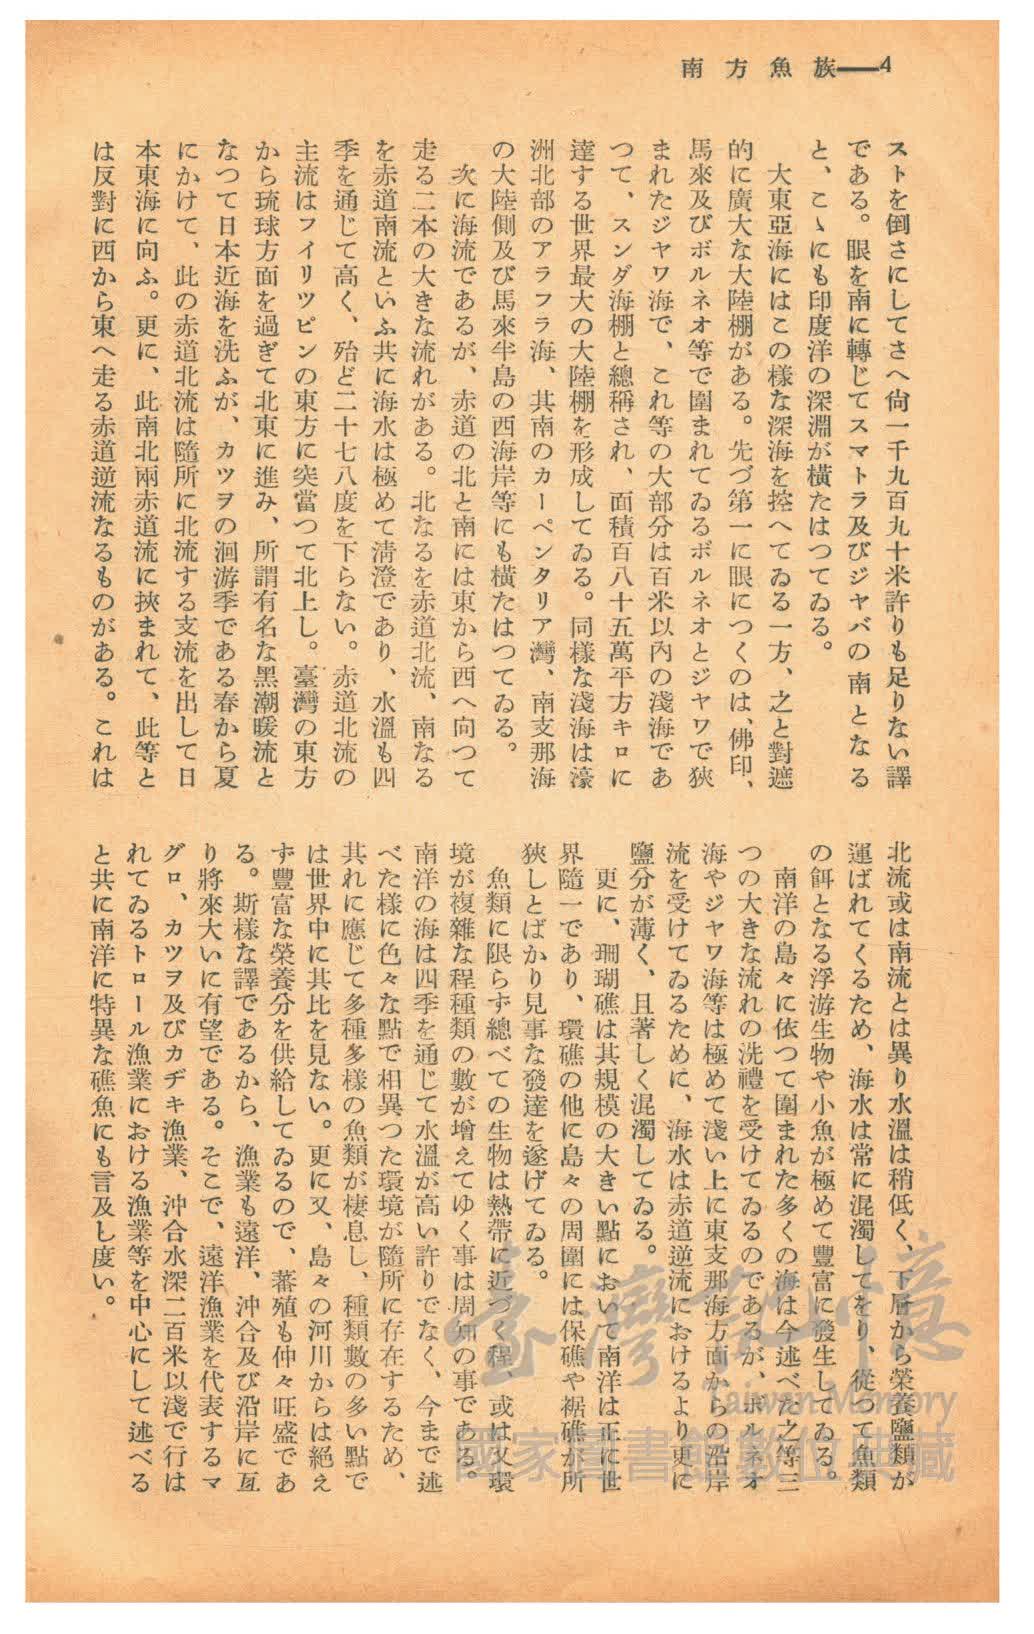 南方魚族——4
ストを倒さにしてさへ尙一千九百九十米許りも足りない譯
である。眼を南に轉じてスマトラ及びジヤバの南となる
と、こゝにも印度洋の深淵が橫たはつてゐる。
大東亞海にはこの樣な深海を控へてゐる一方、之と對遮
的に廣大な大陸棚がある。先づ第一に眼につくのは、佛印、
馬來及びボルネオ等で圍まれてゐるボルネオとジヤワで狹
まれたジヤワ海で、これ等の大部分は百米以內の淺海であ
つて、スンダ海棚と總稱され、面積百八十五萬平方キロに
達する世界最大の大陸棚を形成してゐる。同樣な淺海は濠
洲北部のアラフラ海、其南のカーペンタリア灣、南支那海
の大陸側及び馬來半島の西海岸等にも橫たはつてゐる。
次に海流であるが、赤道の北と南には東から西へ向つて
走る二本の大きな流れがある。北なるを赤道北流、南なる
を赤道南流といふ共に海水は極めて淸澄であり、水溫も四
季を通じて高く、殆ど二十七八度を下らない。赤道北流の
主流はフイリツピンの東方に突當つて北上し。臺灣の東方
から琉球方面を過ぎて北東に進み、所謂有名な黑潮暖流と
なつて日本近海を洗ふが、カツヲの洄游季である春から夏
にかけて、此の赤道北流は隨所に北流する支流を出して日
本東海に向ふ。更に、此南北兩赤道流に挾まれて、此等と
は反對に西から東へ走る赤道逆流なるものがある。これは
北流或は南流とは異り水溫は稍低く、下層から榮養鹽類が
運ばれてくるため、海水は常に混濁してをり、從つて魚類
の餌となる浮游生物や小魚が極めて豐富に發生してゐる。
南洋の島々に依つて圍まれた多くの海は今述べた之等三
つの大きな流れの洗禮を受けてゐるのであるが、ボルネオ
海やジヤワ海等は極めて淺い上に東支那海方面からの沿岸
流を受けてゐるために、海水は赤道逆流におけるより更に
鹽分が薄く、且著しく混濁してゐる。
更に、珊瑚礁は其規模の大きい點において南洋は正に世
界隨一であり、環礁の他に島々の周圍には保礁や裾礁が所
狹しとばかり見事な發達を遂げてゐる。
魚類に限らず總べての生物は熱帶に近づく程、或は又環
境が複雜な程種類の數が增えてゆく事は周知の事である。
南洋の海は四季を通じて水溫が高い許りでなく、今まで述
べた樣に色々な點で相異つた環境が隨所に存在するため、
其れに應じて多種多樣の魚類が棲息し、種類數の多い點で
は世界中に其比を見ない。更に又、島々の河川からは絕え
ず豐富な榮養分を供給してゐるので、蕃殖も仲々旺盛であ
る。斯樣な譯であるから、漁業も遠洋、沖合及び沿岸に亙
り將來大いに有望である。そこで、遠洋漁業を代表するマ
グロ、カツヲ及びカヂキ漁業、沖合水深二百米以淺で行は
れてゐるトロール漁業における漁業等を中心にして述べる
と共に南洋に特異な礁魚にも言及し度い。
臺灣記憶
Taiwan Memory
國家圖書館數位典藏